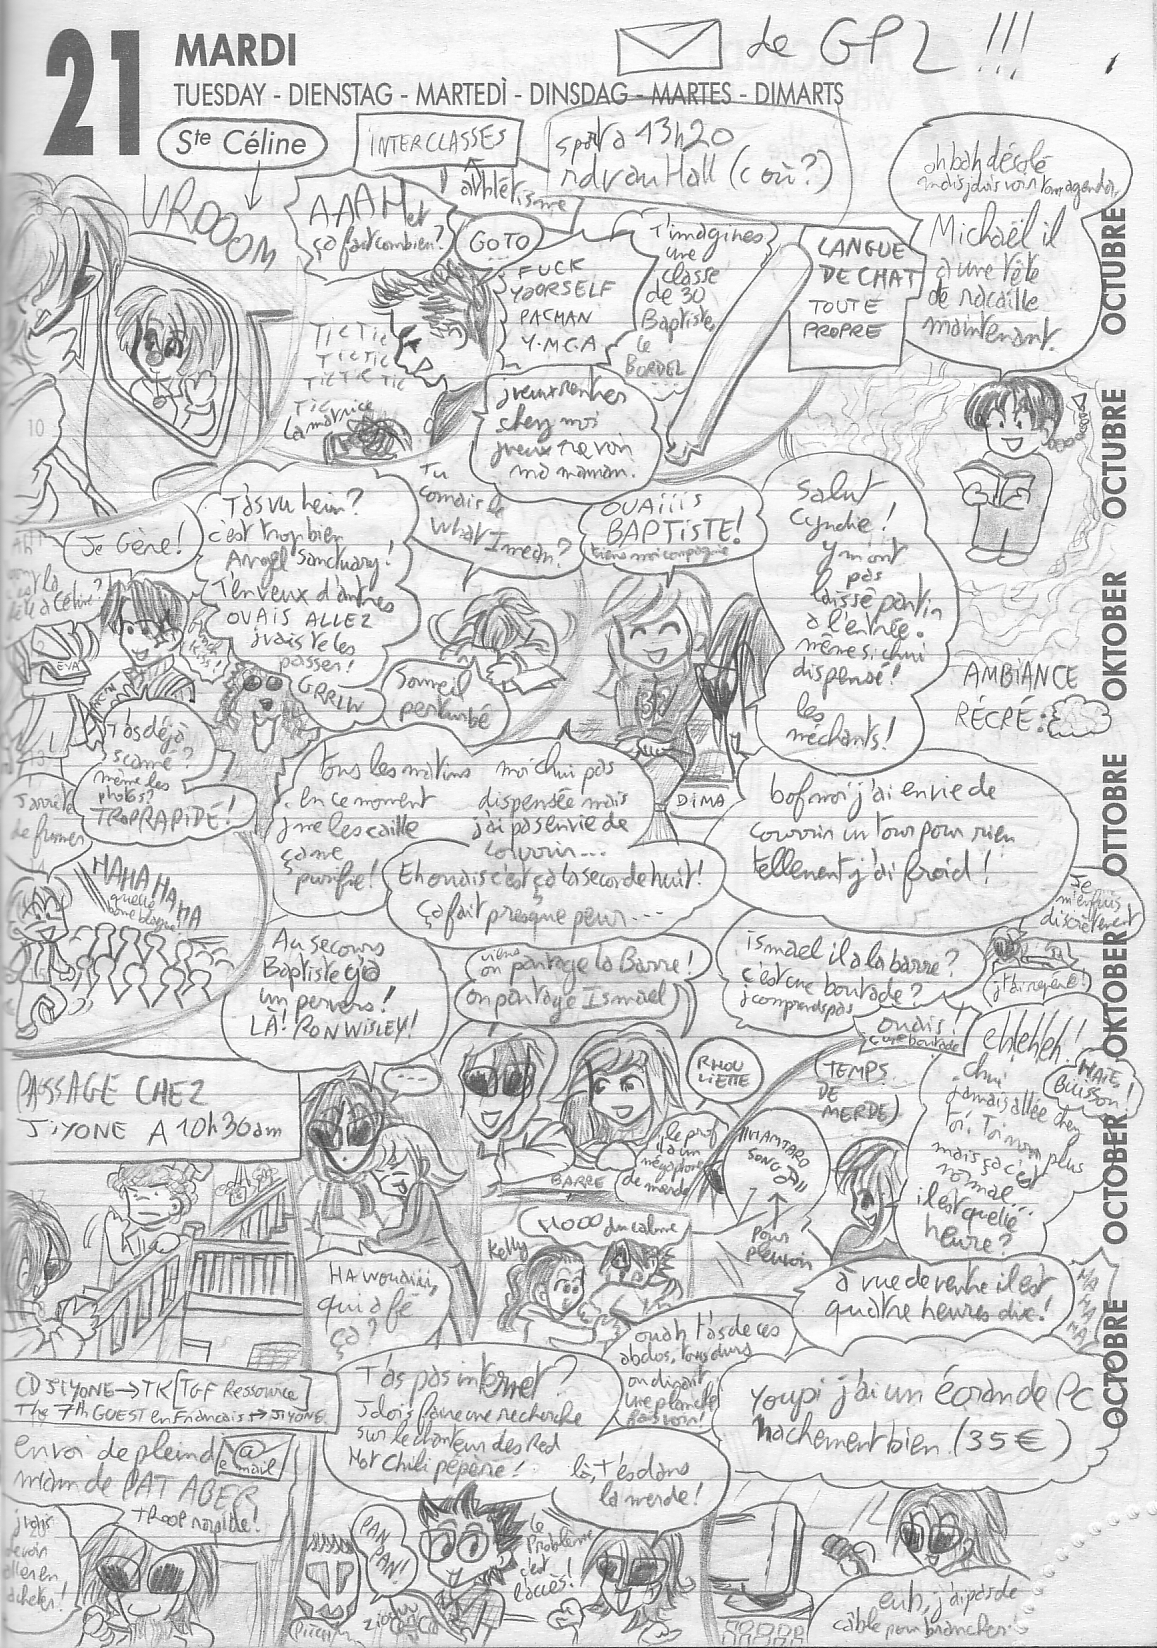 21 MARDI
de GP2 !!!
TUESDAY - DIENSTAG - MARTEDÌ - DINSDAG - MARTES - DIMARTS
Ste Céline
INTERCLASSES
athlétisme
sport à 13h20
rdv au Hall (c où?)
VROOOM
AAAH et
ça fait combien?
GOTO
...
FUCK
YOORSELF
PACMAN
Y.M.C.A
T'imagines
une
classe
de 30
Baptiste
le
BORDEL
LANGUE
DE CHAT
TOUTE
PROPRE
oh bah désolé
mais j'dois voir ton agenda,
Michaël il
a une tête
de racaille
maintenant.
TIC TIC
TIC TIC
TIC TIC TIC
TIC
La matrice
j'veux rentrer
chez moi
j'veux revoir
ma maman.
OCTUBRE
OCTUBRE
OKTOBER
OTTOBRE
OKTOBER
OCTOBER
OCTOBRE
10
Je Gène!
T'as vu hein?
c'est trop bien
Angel Sanctuary!
T'en veux d'autres
OUAIS ALLEZ
j'vais te les
passer!
GRRLW
Tu
connais le
What I mean?
OUAIIIS
BAPTISTE!
tiens moi compagnie
Salut
Cyndie!
Y m'ont
pas
laissé partir
à l'entrée.
même si chui
dispensé!
les
méchants!
AMBIANCE
RÉCRÉ:
EVA
Someil
perturbé
DIMA
T'as déjà
scanné?
même les
photos?
TROP RAPIDE!
J'arrête
de fumer
HAHA HA HA
quelle
bonne blague!
tous les matins
en ce moment
j'me les caille
ça me
purifie!
moi chui pas
dispensée mais
j'ai pas envie de
courrir...
Eh ouais c'est ça la seconde huit!
ça fait presque peur...
bof moi j'ai envie de
courrir un tour pour rien
tellement j'ai froid!
Je
m'enfuis
discrètement
Au secours
Baptiste y'a
un pervers!
LÀ! RON WISLEY!
viens
on partage la Barre!
on partage Ismael
ismael il a la barre?
c'est une boutade?
j'comprends pas
ouais!
c'une boutade
ehehehh!
HAIE,
BUISSON!
chui
jamais allée chez
toi. Toi non plus
mais ça c'est
normal...
il est quelle
heure?
PASSAGE CHEZ
JIYONE A 10h30am
...
RHOU
LIETTE
TEMPS
DE
MERDE
le prof
il a un
mégaphone
de merde
HAMTARO
SONG
Pour
pleuvoir
BARRE
HOOO du calme
Kelly
à vue de ventre il est
quatre heures dix!
HA
HA
HA
HA!
HA wouaiii,
qui a fé
ça?
ouah t'as de ces
abdos, tous durs
on dirait
une planche
CD JIYONE → TK [TGF Ressource]
The 7th GUEST en Francais → JIYONE.
T'as pas internet?
J'dois faire une recherche
sur le chanteur des Red
Hot Chili pépère!
là, t'es dans
la merde!
Youpi j'ai un écran de PC
hachement bien. (35€)
envoi de plein d'e-mail
mam de PAT ABER
TROOP rapide!
j'vais
devoir
aller en
acheter!
PAN
PAN!
Le
Problème
c'est
l'accès!
euh, j'ai pas de
câble pour brancher